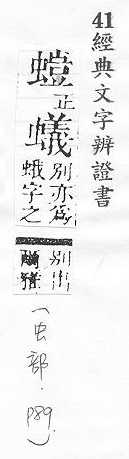 41 經典文字辨證書
螘 正 蟻 別亦爲
蛾字之
別出
(虫部. P89.)